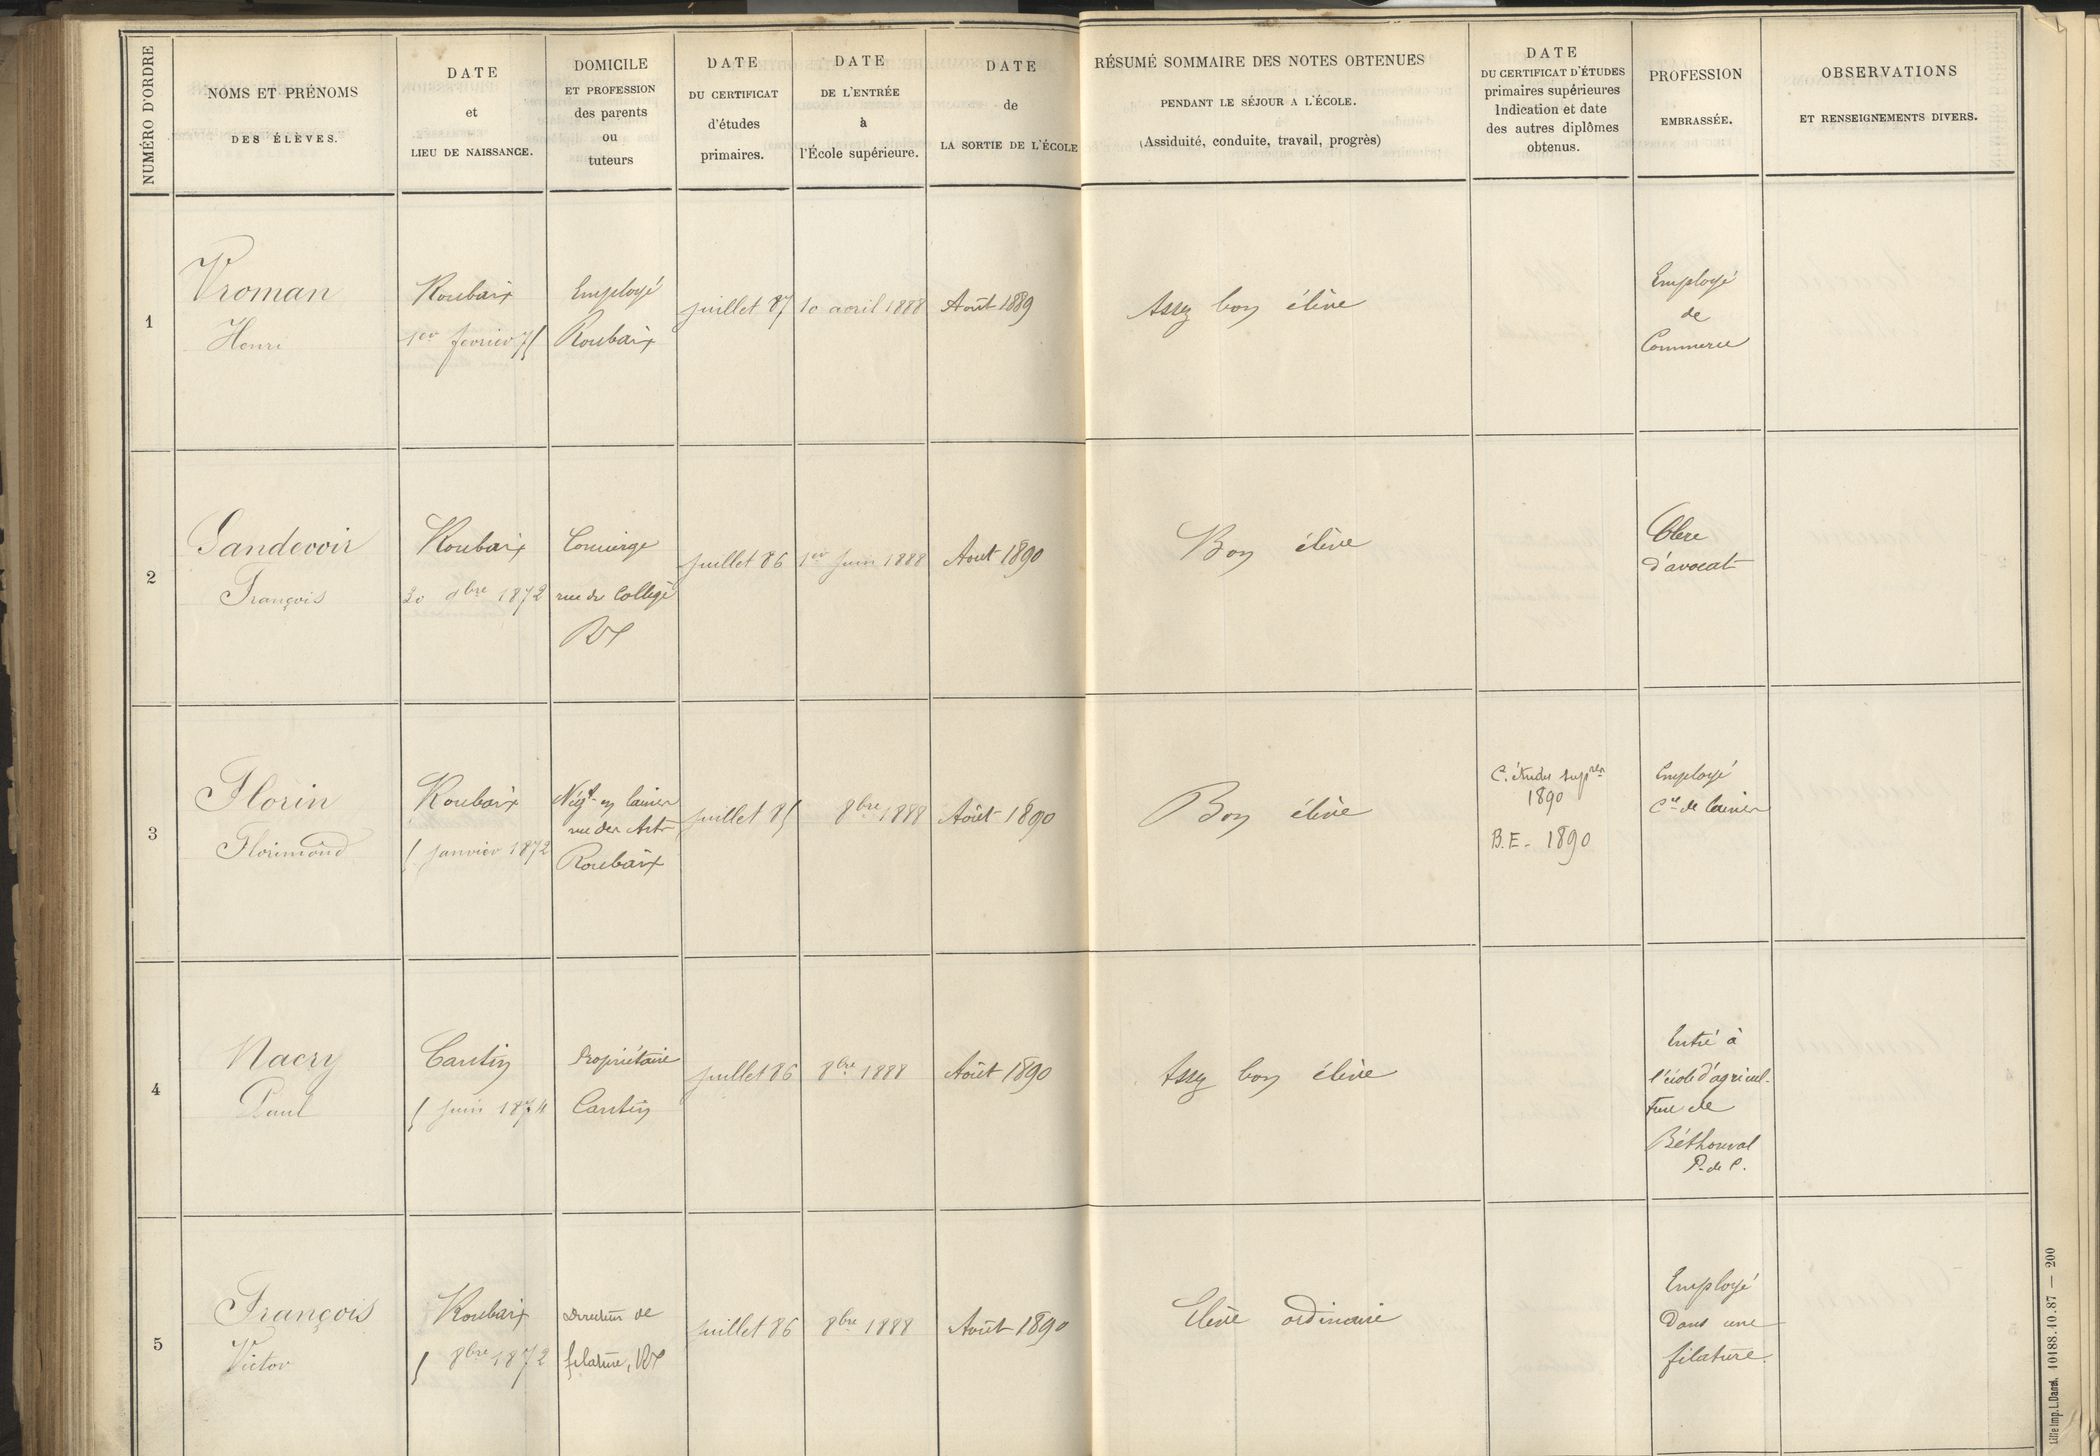 NUMÉRO D'ORDRE
NOMS ET PRÉNOMS
DES ÉLÈVES.
DATE
et
LIEU DE NAISSANCE.
DOMICILE
ET PROFESSION
des parents
ou
tuteurs
DATE
DU CERTIFICAT
d'études
primaires.
DATE
DE L'ENTRÉE
à
l'École supérieure.
DATE
de
LA SORTIE DE L'ÉCOLE
RÉSUMÉ SOMMAIRE DES NOTES OBTENUES
PENDANT LE SÉJOUR A L'ÉCOLE.
(Assiduité, conduite, travail, progrès)
DATE
DU CERTIFICAT D'ÉTUDES
primaires supérieures
Indication et date
des autres diplômes
obtenus.
PROFESSION
EMBRASSÉE.
OBSERVATIONS
ET RENSEIGNEMENTS DIVERS.
1
Vroman
Henri
Roubaix
1er février 75
Employé
Roubaix
juillet 87
10 avril 1888
Août 1889
Assez bon élève
Employé
de
Commerce
2
Sandevoir
François
Roubaix
30 9bre 1872
Concierge
rue du Collège
Rx
juillet 86
1er Juin 1888
Aout 1890
Bon élève
Clerc
d'avocat
3
Florin
Florimond
Roubaix
5 janvier 1872
Négt en laines
rue des Arts
Roubaix
juillet 85
8bre 1888
Août 1890
Bon élève
C. études supres
1890
B.E. 1890
Employé
Cce de laines
4
Nacry
Paul
Cantin
5 juin 1874
Propriétaire
Cantin
juillet 86
8bre 1888
Août 1890
Assez bon élève
Entré à
l'école d'agricul-
ture de
Béthonval
P. de C.
5
François
Victor
Roubaix
5 8bre 1872
Directeur de
filature, Rx
juillet 86
8bre 1888
Août 1890
Elève ordinaire
Employé
Dans une
filature.
Lille Imp. L. Danel. 10188.10.87 — 200